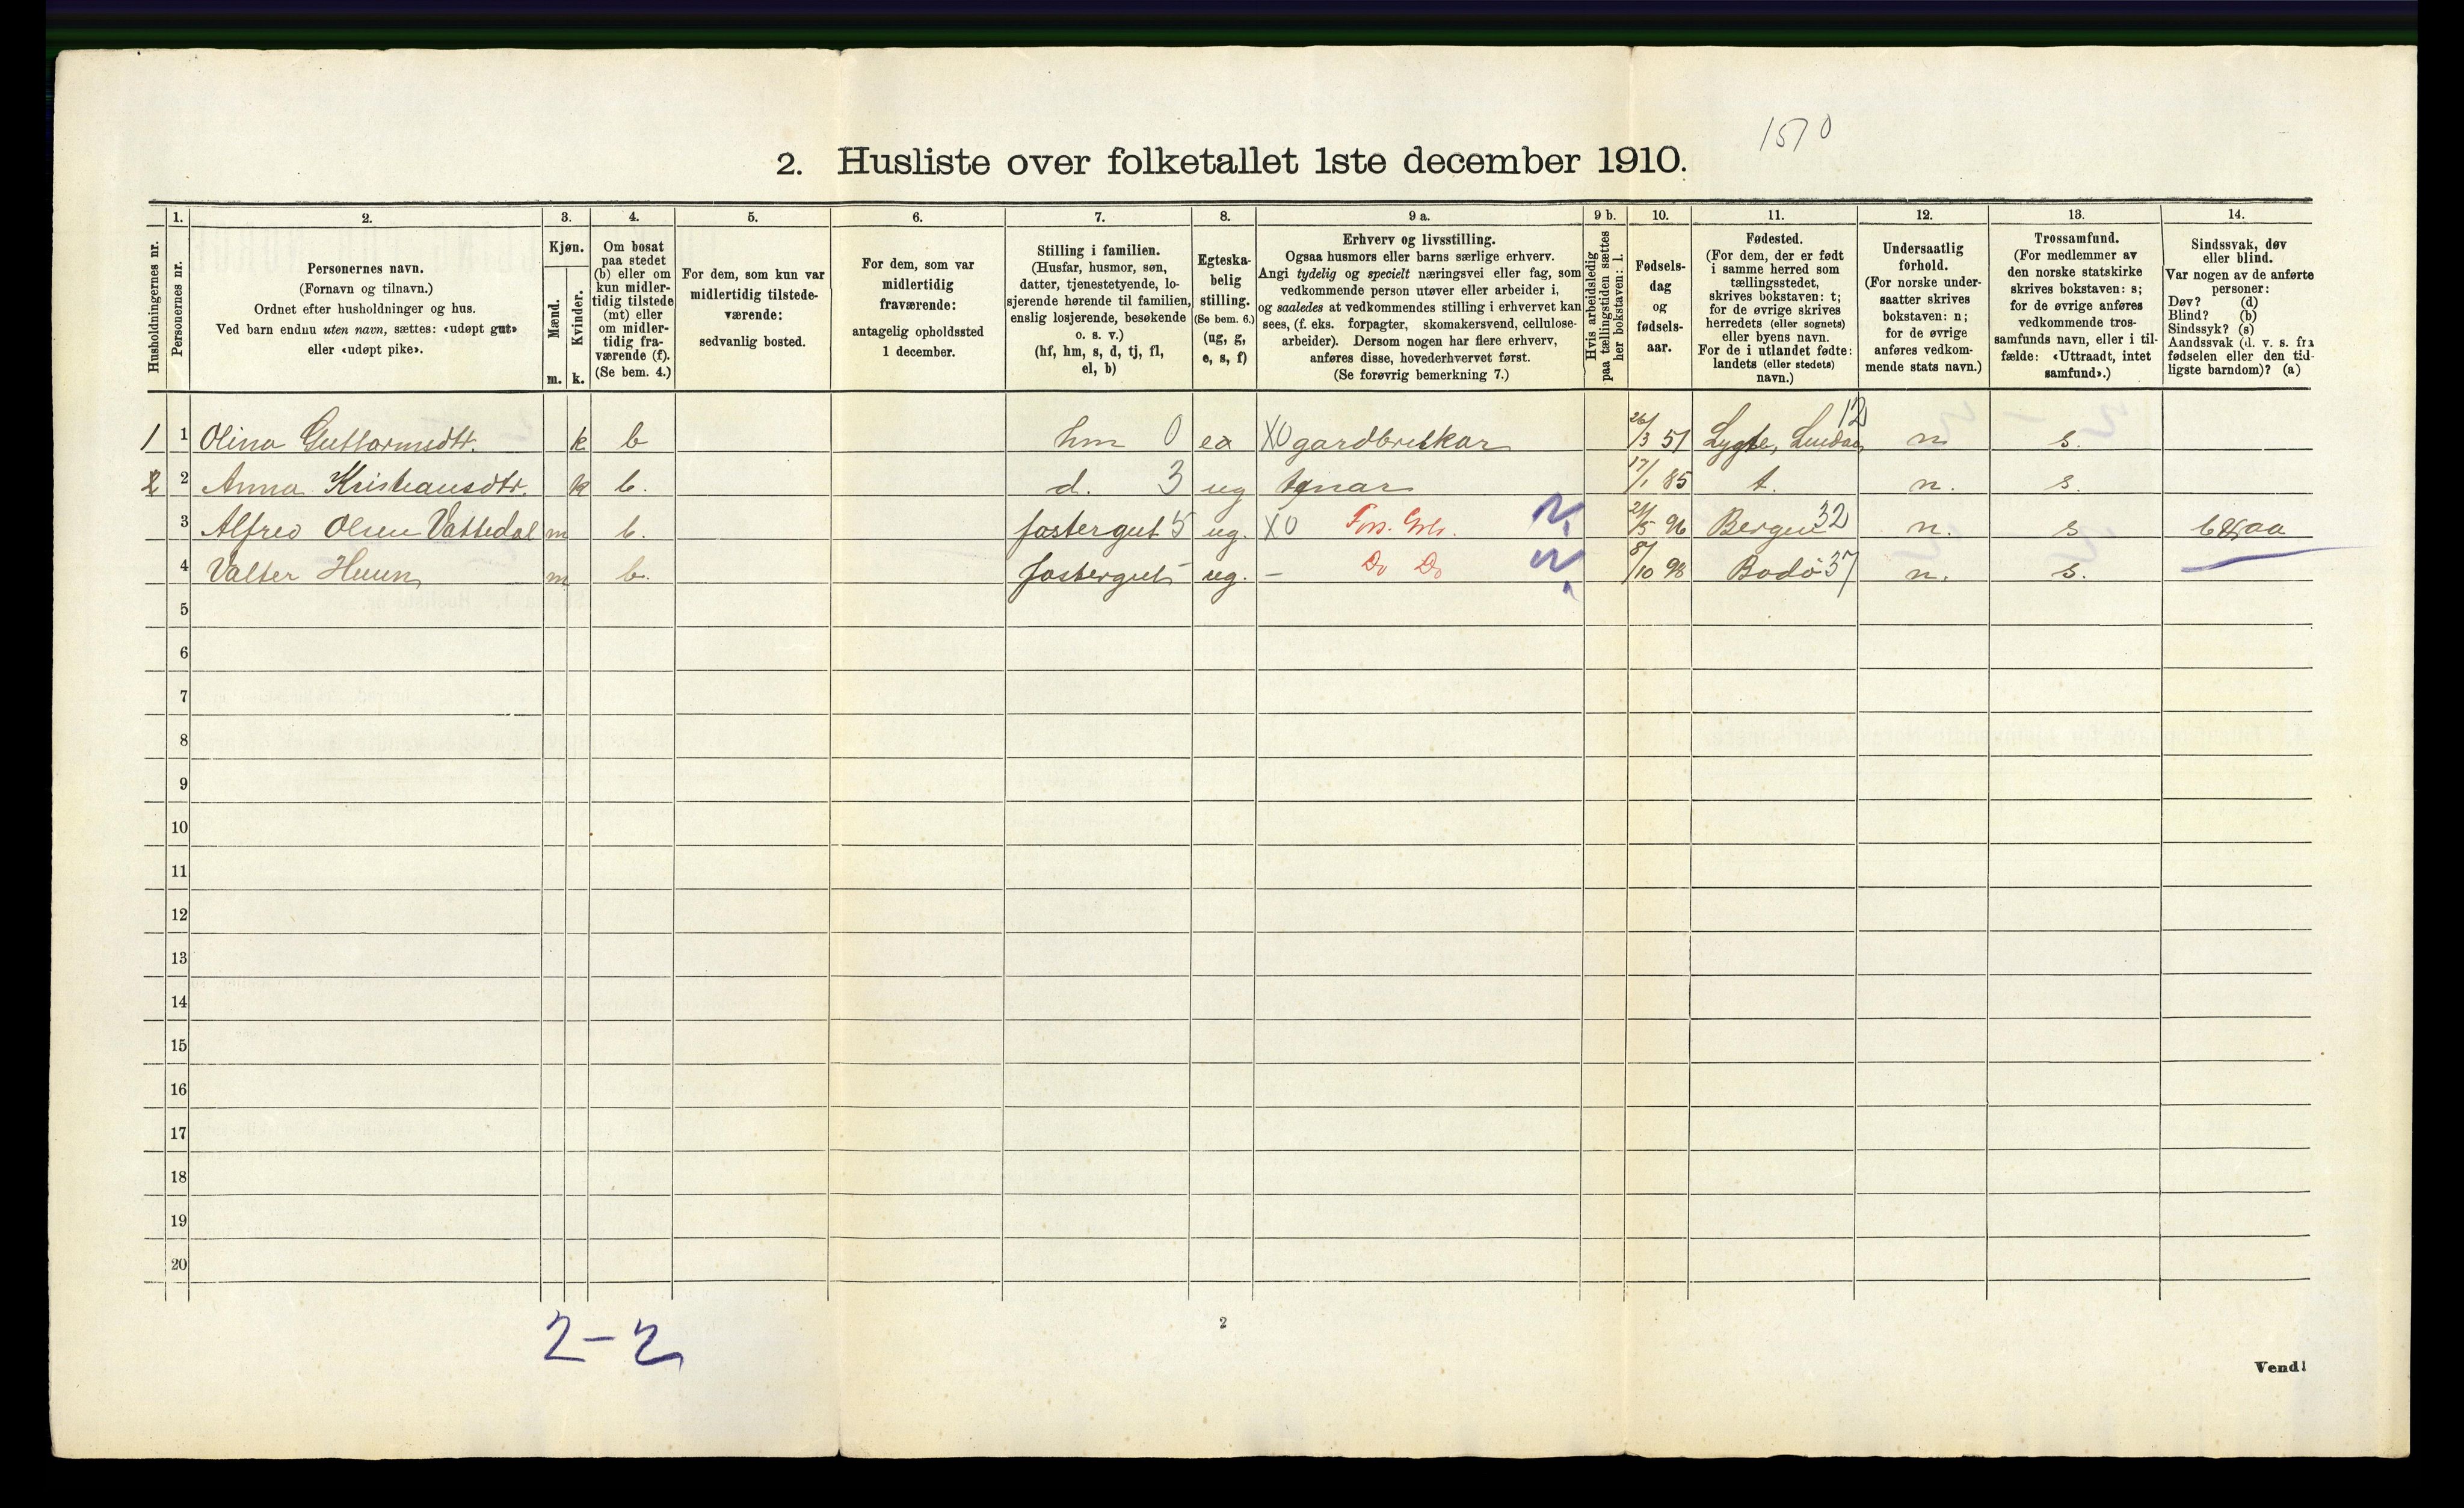 1570
2. Husliste over folketallet 1ste december 1910.
1. 2. 3. 4. 5. 6. 7. 8. 9 a. 9 b. 10. 11. 12. 13. 14.
Husholdningernes nr.
Personernes nr.
Personernes navn.
(Fornavn og tilnavn.)
Ordnet efter husholdninger og hus.
Ved barn endnu uten navn, sættes: «udøpt gut»
eller «udøpt pike».
Kjøn.
Mænd.
m.
Kvinder.
k.
Om bosat
paa stedet
(b) eller om
kun midler-
tidig tilstede
(mt) eller
om midler-
tidig fra-
værende (f).
(Se bem. 4.)
For dem, som kun var
midlertidig tilstede-
værende:
sedvanlig bosted.
For dem, som var
midlertidig
fraværende:
antagelig opholdssted
1 december.
Stilling i familien.
(Husfar, husmor, søn,
datter, tjenestetyende, lo-
sjerende hørende til familien,
enslig losjerende, besøkende
o. s. v.)
(hf, hm, s, d, tj, fl,
el, b)
Egteska-
belig
stilling.
(Se bem. 6.)
(ug, g,
e, s, f)
Erhverv og livsstilling.
Ogsaa husmors eller barns særlige erhverv.
Angi tydelig og specielt næringsvei eller fag, som
vedkommende person utøver eller arbeider i,
og saaledes at vedkommendes stilling i erhvervet kan
sees, (f. eks. forpagter, skomakersvend, cellulose-
arbeider). Dersom nogen har flere erhverv,
anføres disse, hovederhvervet først.
(Se forøvrig bemerkning 7.)
Hvis arbeidsledig
paa tællingstiden sættes
her bokstaven: l.
Fødsels-
dag
og
fødsels-
aar.
Fødested.
(For dem, der er født
i samme herred som
tællingsstedet,
skrives bokstaven: t;
for de øvrige skrives
herredets (eller sognets)
eller byens navn.
For de i utlandet fødte:
landets (eller stedets)
navn.)
Undersaatlig
forhold.
(For norske under-
saatter skrives
bokstaven: n;
for de øvrige
anføres vedkom-
mende stats navn.)
Trossamfund.
(For medlemmer av
den norske statskirke
skrives bokstaven: s;
for de øvrige anføres
vedkommende tros-
samfunds navn, eller i til-
fælde: «Uttraadt, intet
samfund».)
Sindssvak, døv
eller blind.
Var nogen av de anførte
personer:
Døv? (d)
Blind? (b)
Sindssyk? (s)
Aandssvak (d. v. s. fra
fødselen eller den tid-
ligste barndom)? (a)
1 1 Olina Guttormsdtr. k b hm 0 ea X0 gardbrukar 26/3 51 Lygre, Lindaas 12 n s.
2 2 Anna Kristiansdtr. k b. d. 3 ug tenar 17/1 85 t. n. s.
3 Alfred Olsen Vattedal m b. fostergut 5 ug. X0 Fors. Grbr. 21/5 96 Bergen 32 n. s
4 Valter Huun m b. fostergut ug. - Do Do 8/10 98 Bodö 37 n. s.
5
6
7
8
9
10
11
12
13
14
15
16
17
18
19
20
2-2
2
Vend!